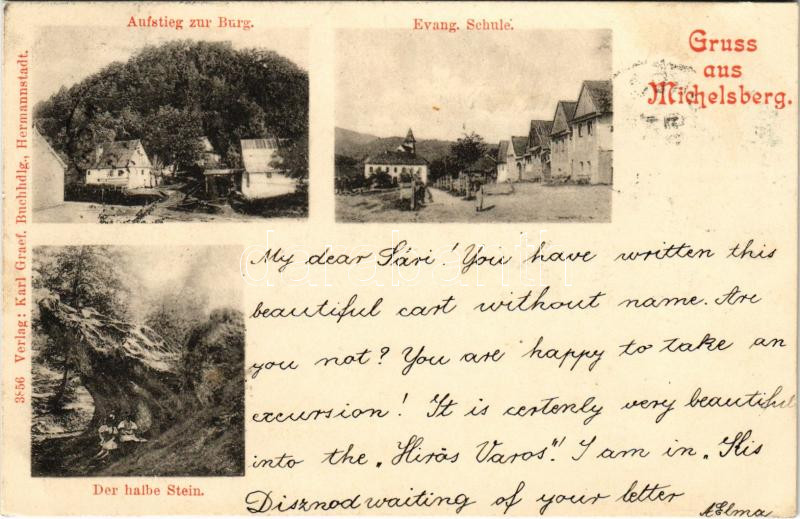 Aufstieg zur Burg.
Evang. Schule.
Gruss
aus
Michelsberg.
3856 Verlag: Karl Graef, Buchhdlg., Hermannstadt.
My dear Sári! You have written this
beautiful cart without name. Are
you not? You are happy to take an
excursion! It is certenly very beautiful
into the „Hirös Varos"! I am in „Kis
Disznod waiting of your letter
Elma
Der halbe Stein.